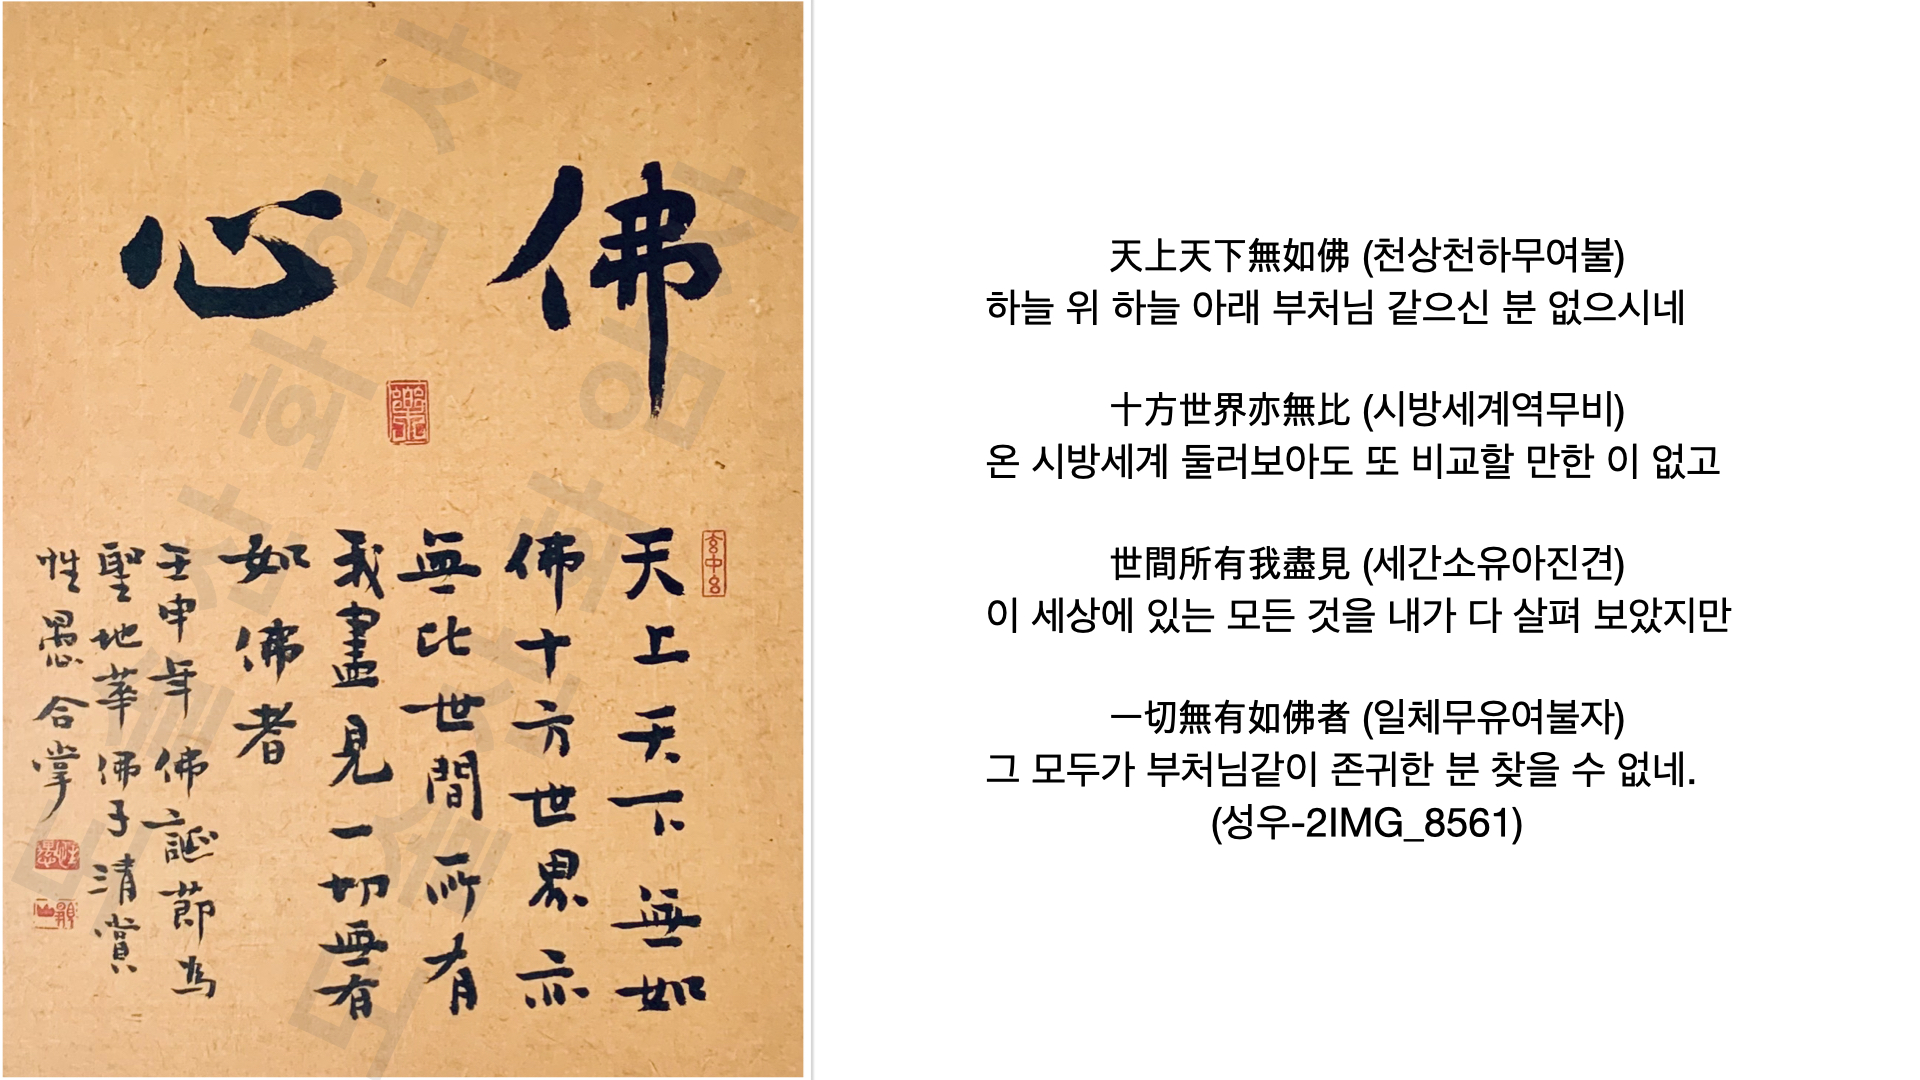 佛心
天上天下無如
佛十方世界亦
無比世間所有
我盡見一切無有
如佛者
壬申年佛誕節為
聖地華佛子清賞
性愚合掌
天上天下無如佛 (천상천하무여불)
하늘 위 하늘 아래 부처님 같으신 분 없으시네
十方世界亦無比 (시방세계역무비)
온 시방세계 둘러보아도 또 비교할 만한 이 없고
世間所有我盡見 (세간소유아진견)
이 세상에 있는 모든 것을 내가 다 살펴 보았지만
一切無有如佛者 (일체무유여불자)
그 모두가 부처님같이 존귀한 분 찾을 수 없네.
(성우-2IMG_8561)